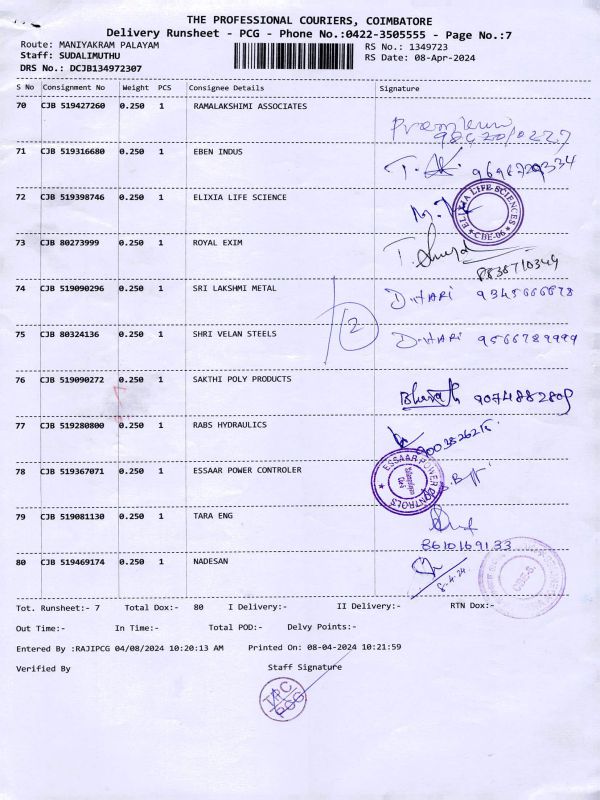 THE PROFESSIONAL COURIERS, COIMBATORE
Delivery Runsheet - PCG - Phone No.:0422-3505555 - Page No.:7
Route: MANIYAKRAM PALAYAM
RS No.: 1349723
Staff: SUDALIMUTHU
RS Date: 08-Apr-2024
DRS No.: DCJB134972307
S No Consignment No Weight PCS Consignee Details Signature
70 CJB 519427260 0.250 1 RAMALAKSHIMI ASSOCIATES
71 CJB 519316680 0.250 1 EBEN INDUS
72 CJB 519398746 0.250 1 ELIXIA LIFE SCIENCE
ELIXIA LIFE SCIENCES
CBE-06
73 CJB 80273999 0.250 1 ROYAL EXIM
8838710349
74 CJB 519090296 0.250 1 SRI LAKSHMI METAL D.HARI 9345666678
2
75 CJB 80324136 0.250 1 SHRI VELAN STEELS D.HARI 9566789999
76 CJB 519090272 0.250 1 SAKTHI POLY PRODUCTS
Bharath 9074882809
77 CJB 519280800 0.250 1 RABS HYDRAULICS
78 CJB 519367071 0.250 1 ESSAAR POWER CONTROLER
ESSAAR POWER CONTROLS
79 CJB 519081130 0.250 1 TARA ENG
8610169133
80 CJB 519469174 0.250 1 NADESAN
8-4-24
Tot. Runsheet:- 7 Total Dox:- 80 I Delivery:- II Delivery:- RTN Dox:-
Out Time:- In Time:- Total POD:- Delvy Points:-
Entered By :RAJIPCG 04/08/2024 10:20:13 AM Printed On: 08-04-2024 10:21:59
Verified By Staff Signature